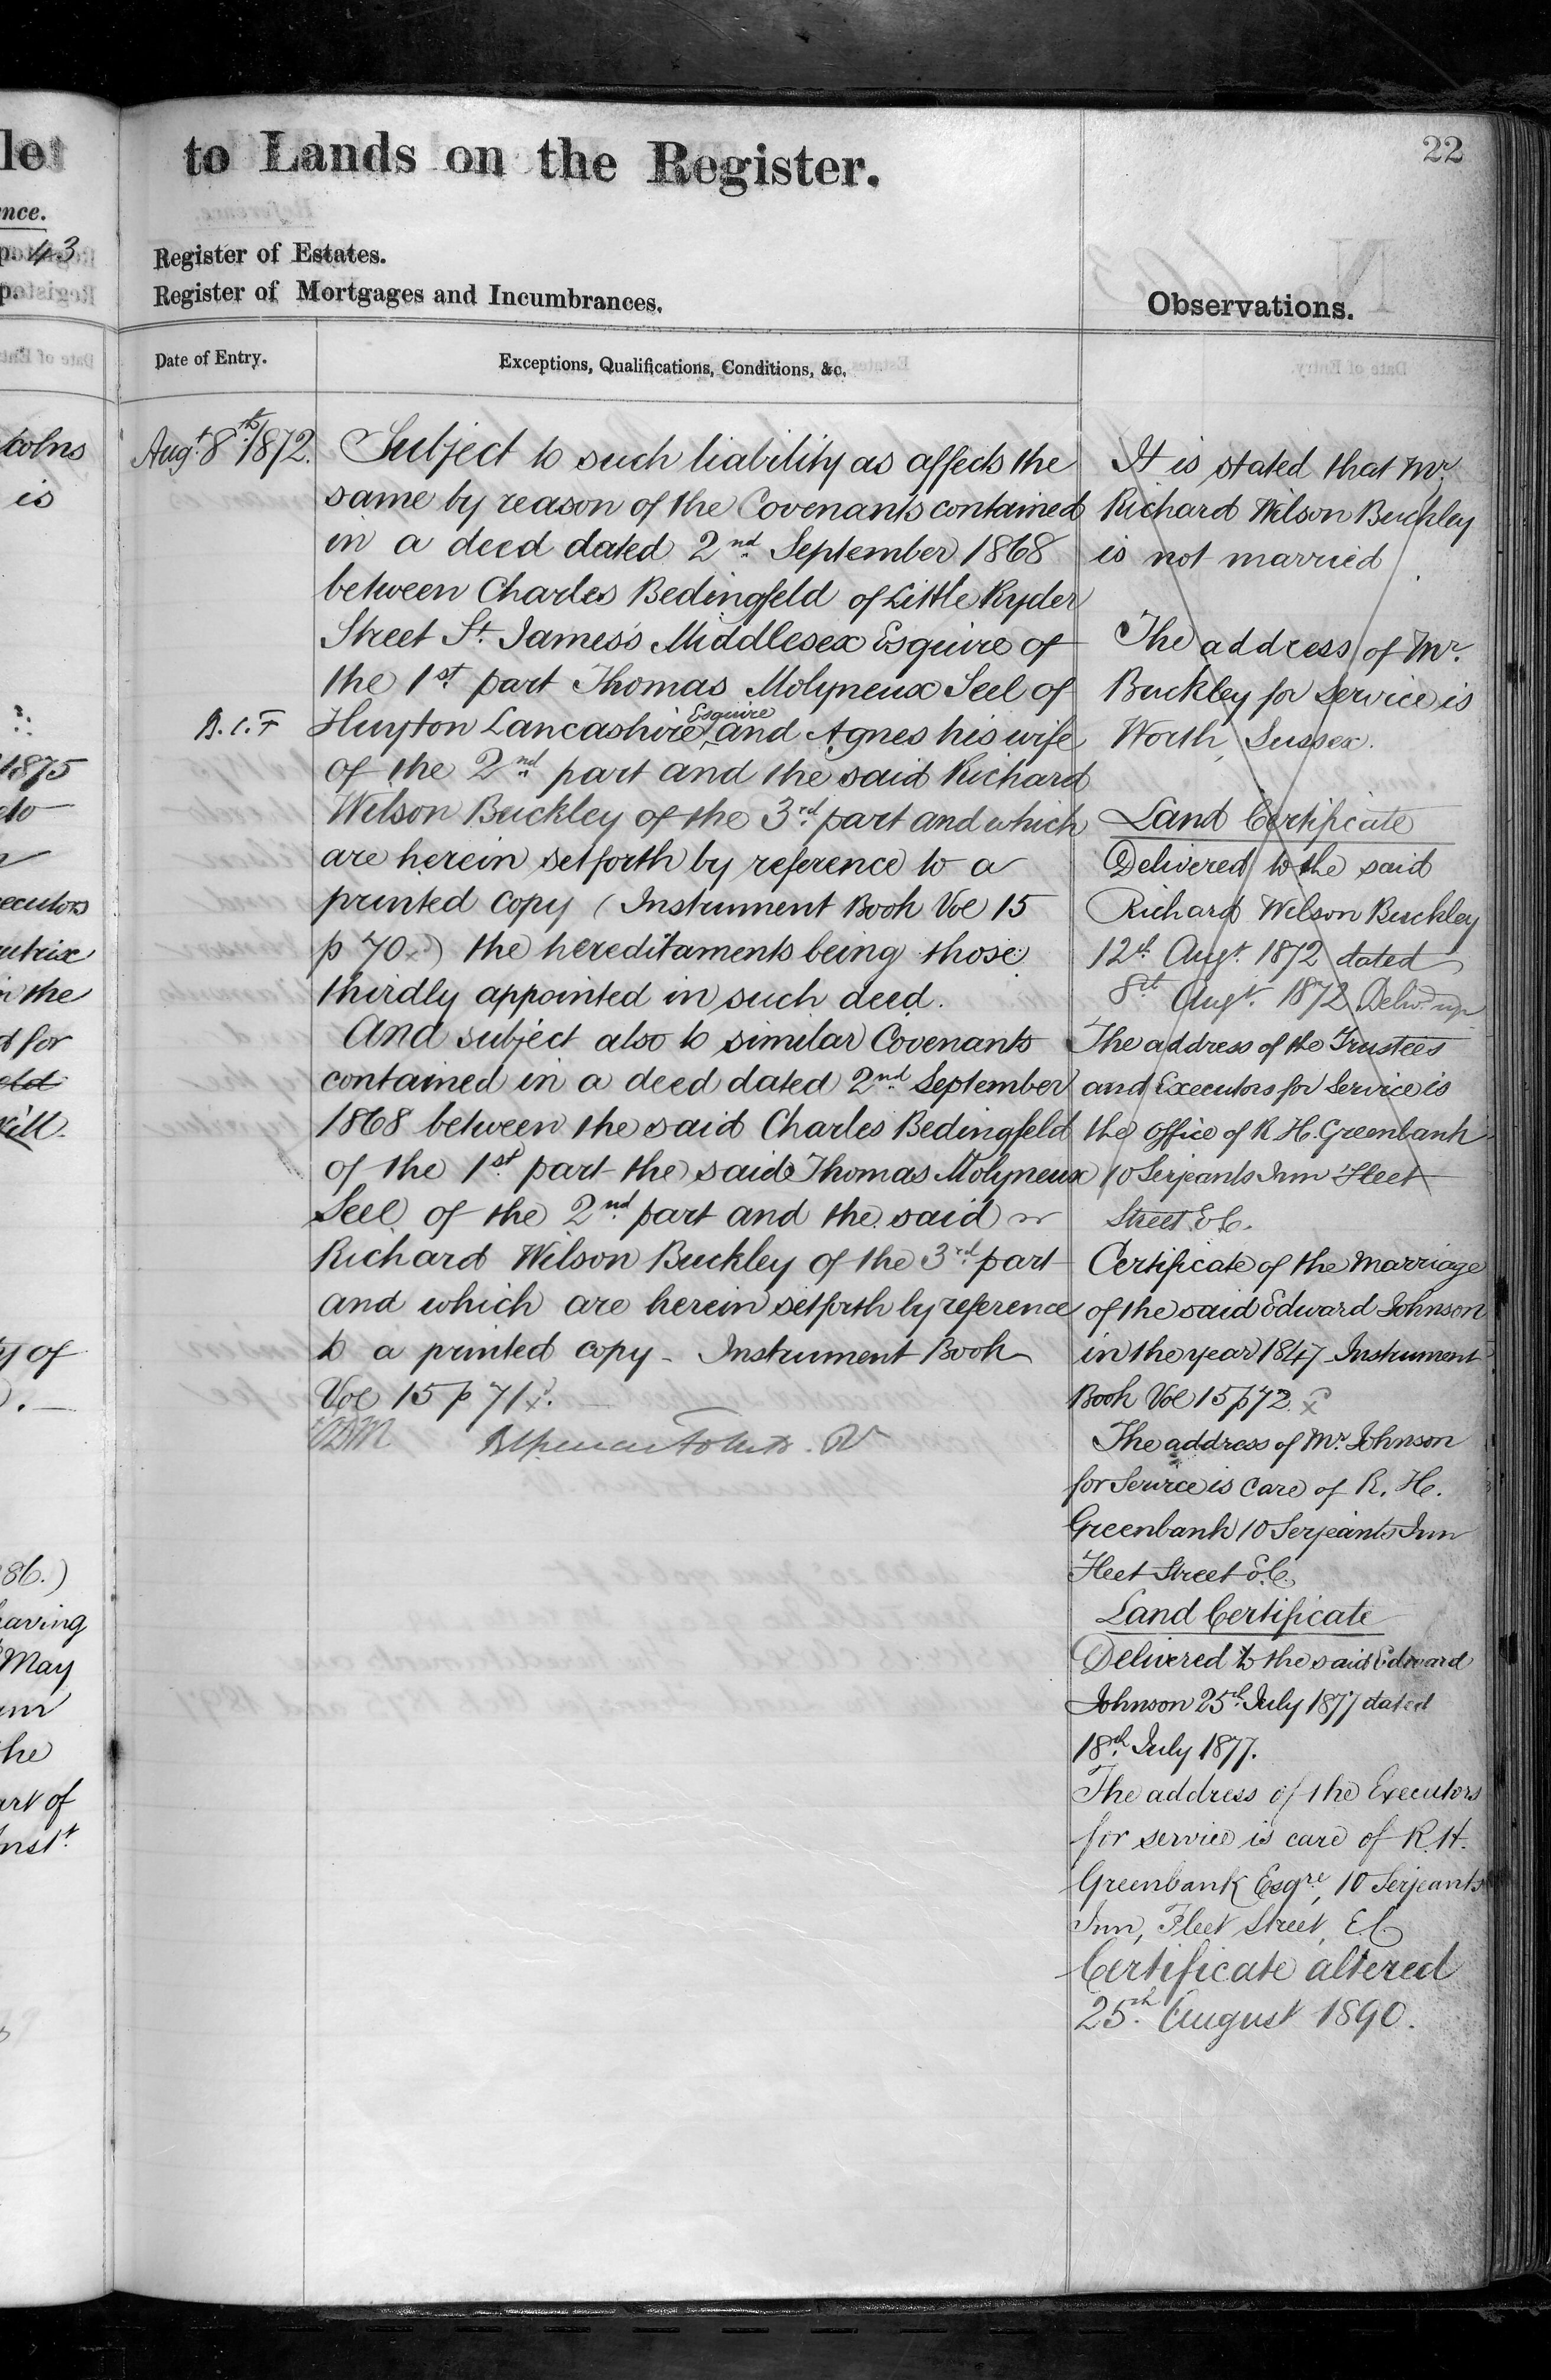 to Lands on the Register.
22
Register of Estates.
Register of Mortgages and Incumbrances.
Observations.
Date of Entry.
Exceptions, Qualifications, Conditions, &c.
Augt. 8th. 1872.
Subject to such liability as affects the
same by reason of the Covenants contained
in a deed dated 2nd September 1868
between Charles Bedingfeld of Little Ryder
Street St. James's Middlesex Esquire of
the 1st. part Thomas Molyneux Seel of
Huyton Lancashire Esquire and Agnes his wife
of the 2nd. part and the said Richard
Wilson Buckley of the 3rd. part and which
are herein setforth by reference to a
printed copy (Instrument Book Vol 15
p 70 x) the hereditaments being those
thirdly appointed in such deed.
And subject also to similar Covenants
contained in a deed dated 2nd. September
1868 between the said Charles Bedingfeld
of the 1st. part the said Thomas Molyneux
Seel of the 2nd. part and the said
Richard Wilson Buckley of the 3rd. part
and which are herein setforth by reference
to a printed copy - Instrument Book
Vol 15 p 71 x.
It is stated that Mr.
Richard Wilson Buckley
is not married
The address of Mr.
Buckley for service is
Worth, Sussex.
Land Certificate
Delivered to the said
Richard Wilson Buckley
12th. Augt. 1872 dated
8th Augt. 1872 Delivd. up
The address of the Trustees
and Executors for Service is
the office of R H. Greenbank
10 Serjeants Inn Fleet
Street E.C.
Certificate of the Marriage
of the said Edward Johnson
in the year 1847 Instrument
Book Vol 15 p 72. x
The address of Mr. Johnson
for Service is care of R. H.
Greenbank 10 Serjeants Inn
Fleet Street E.C.
Land Certificate
Delivered to the said Edward
Johnson 25th. July 1877 dated
18th. July 1877.
The address of the Executors
for service is care of R. H.
Greenbank Esqre, 10 Serjeants
Inn, Fleet Street, E.C.
Certificate altered
25th. August 1890.